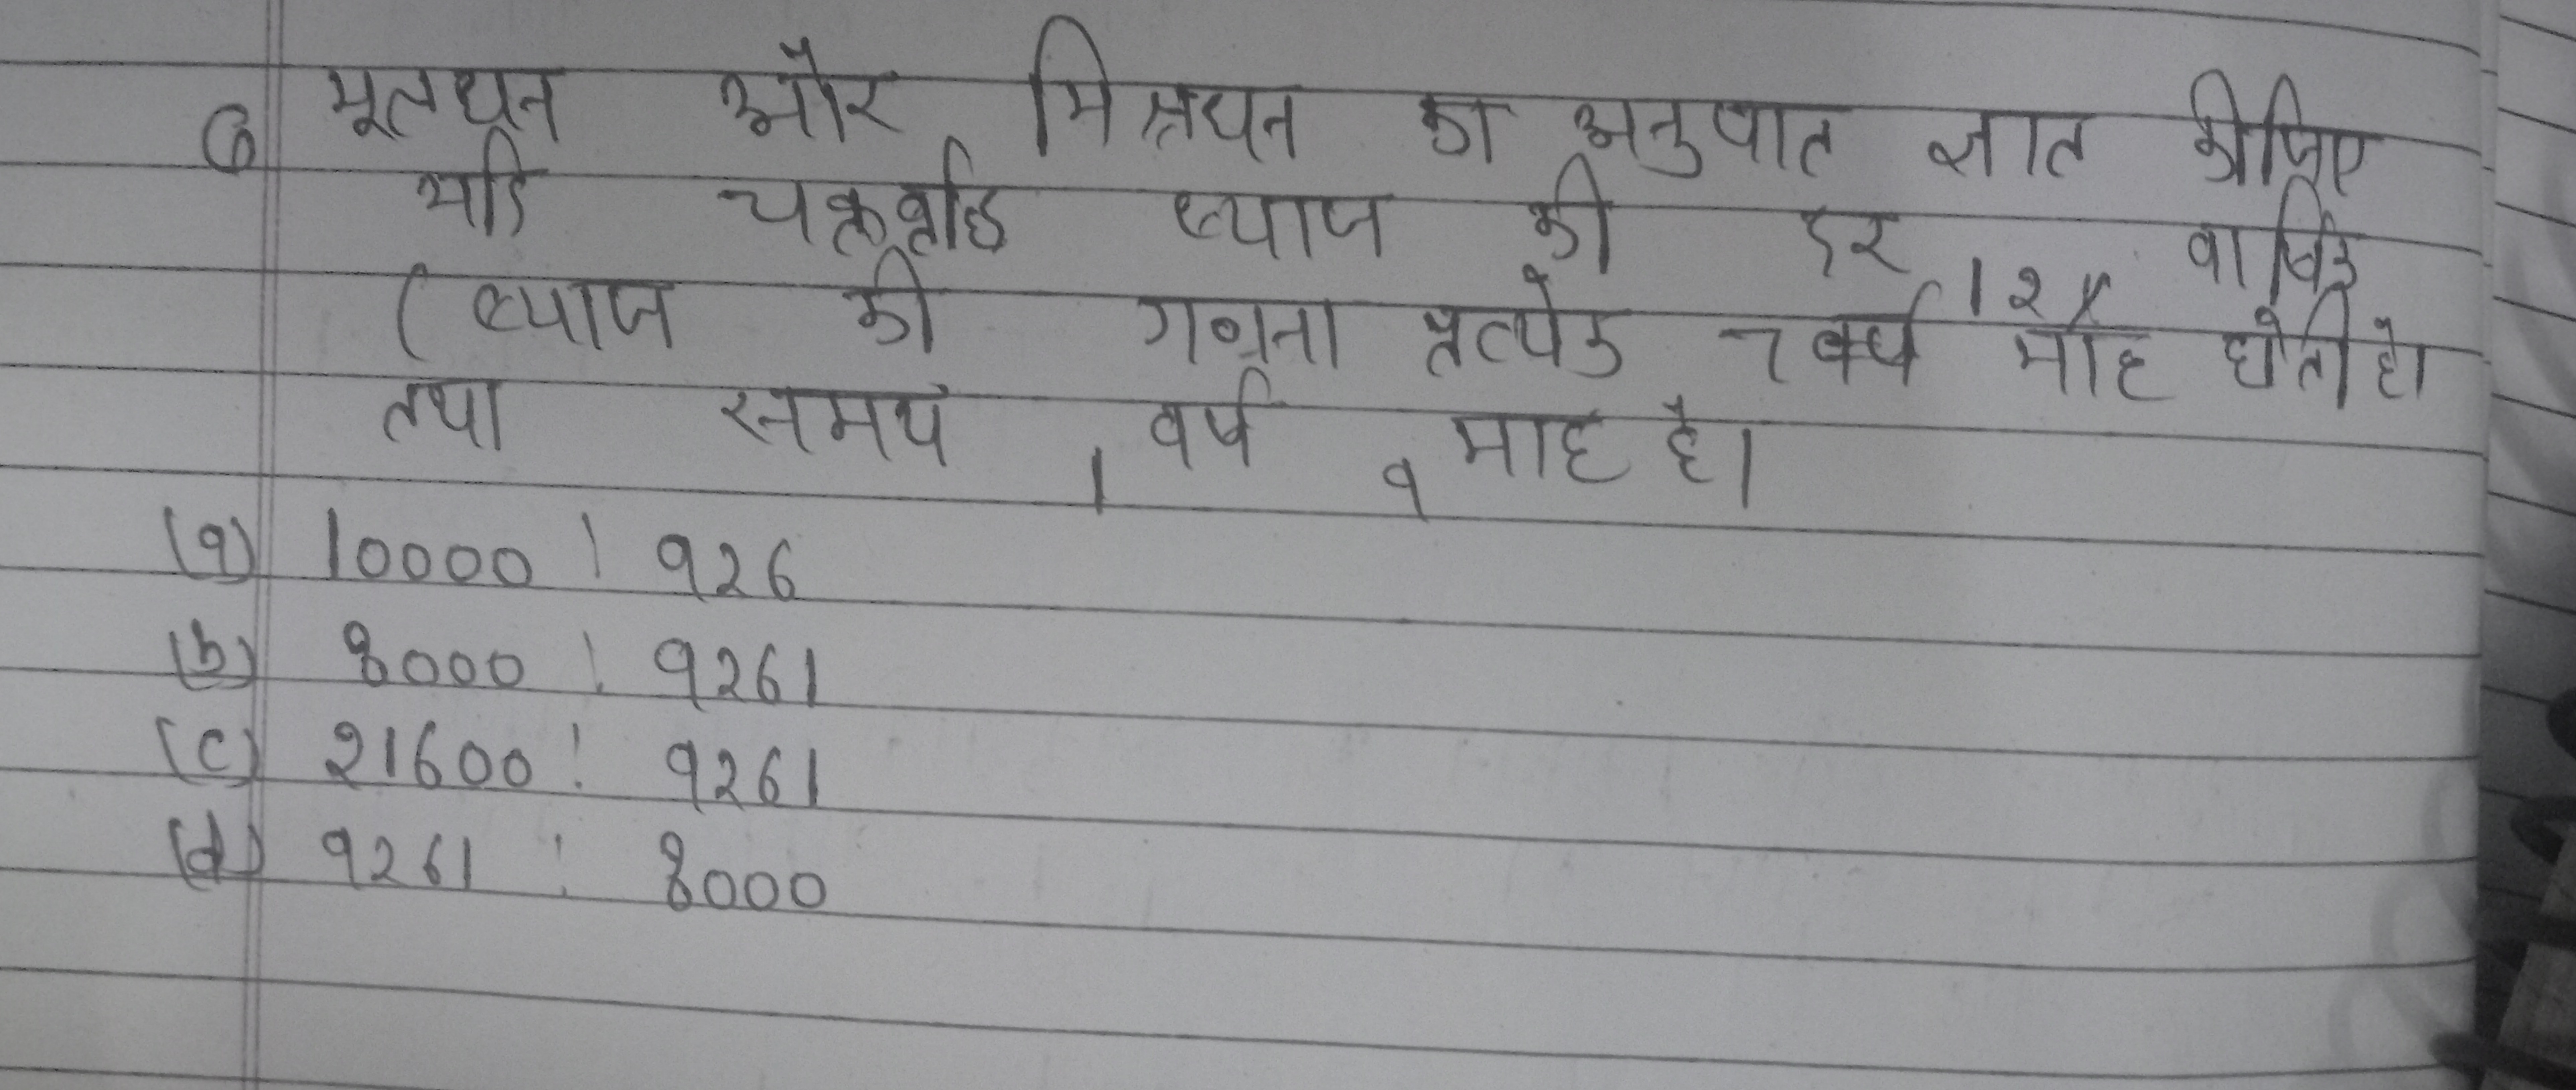 6 मूलधन और मिश्रधन का अनुपात ज्ञात कीजिए
यदि चक्रवृद्धि ब्याज की दर 12% वार्षिक
(ब्याज की गणना प्रत्येक 7 वर्ष माह होती है।
तथा समय 1 वर्ष 9 माह है।
(a) 10000 : 926
(b) 8000 : 9261
(c) 21600 : 9261
(d) 9261 : 8000